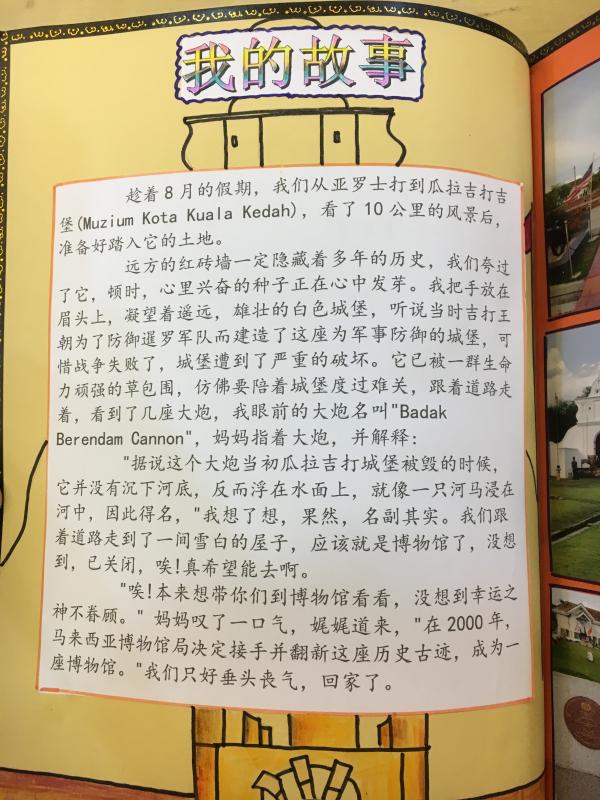 我的故事
趁着8月的假期，我们从亚罗士打到瓜拉吉打吉
堡(Muzium Kota Kuala Kedah)，看了10公里的风景后，
准备好踏入它的土地。
远方的红砖墙一定隐藏着多年的历史，我们夸过
了它，顿时，心里兴奋的种子正在心中发芽。我把手放在
眉头上，凝望着遥远，雄壮的白色城堡，听说当时吉打王
朝为了防御暹罗军队而建造了这座为军事防御的城堡，可
惜战争失败了，城堡遭到了严重的破坏。它已被一群生命
力顽强的草包围，仿佛要陪着城堡度过难关，跟着道路走
着，看到了几座大炮，我眼前的大炮名叫"Badak
Berendam Cannon"，妈妈指着大炮，并解释：
"据说这个大炮当初瓜拉吉打城堡被毁的时候，
它并没有沉下河底，反而浮在水面上，就像一只河马浸在
河中，因此得名，"我想了想，果然，名副其实。我们跟
着道路走到了一间雪白的屋子，应该就是博物馆了，没想
到，已关闭，唉!真希望能去啊。
"唉!本来想带你们到博物馆看看，没想到幸运之
神不眷顾。"妈妈叹了一口气，娓娓道来，"在2000年，
马来西亚博物馆局决定接手并翻新这座历史古迹，成为一
座博物馆。"我们只好垂头丧气，回家了。